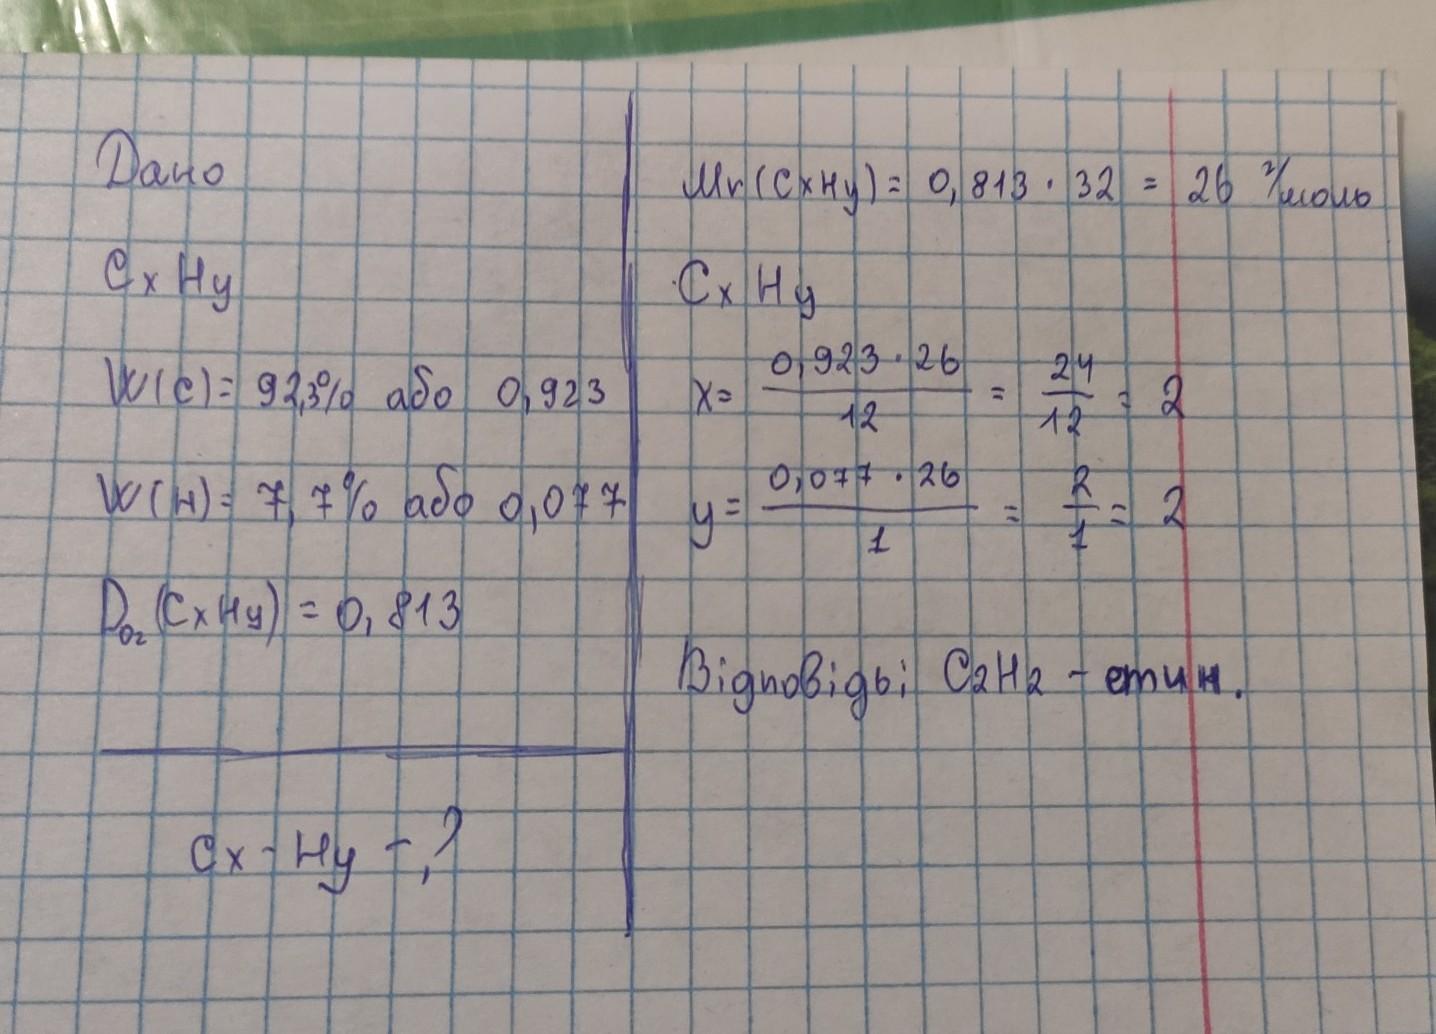 Дано
CxHy
W(C) = 92,3% або 0,923
W(H) = 7,7% або 0,077
DO2(CxHy) = 0,813
Cx - Hy - ?
Mr(CxHy) = 0,813 · 32 = 26 г/моль
CxHy
x = 0,923 · 26 / 12 = 24 / 12 = 2
y = 0,077 · 26 / 1 = 2 / 1 = 2
Відповідь: C2H2 - етин.